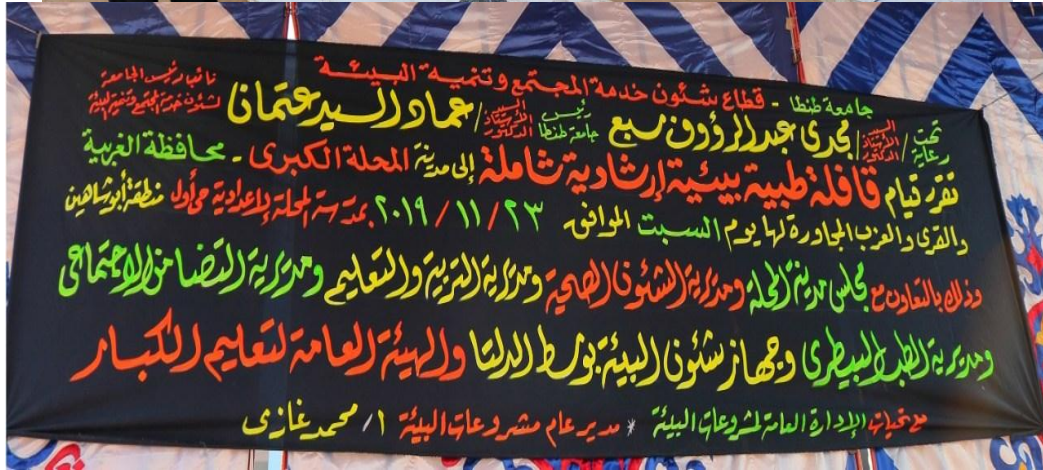 جامعة طنطا - قطاع شئون خدمة المجتمع وتنمية البيئة
تحت رعاية / السيد الأستاذ الدكتور / مجدى عبد الرؤوف سبع رئيس جامعة طنطا السيد الأستاذ الدكتور / عماد السيد عتمان نائب رئيس الجامعة لشئون خدمة المجتمع وتنمية البيئة
تقرر قيام قافلة طبية بيئية إرشادية شاملة إلى مدينة المحلة الكبرى - محافظة الغربية
والقرى والعزب المجاورة لها يوم السبت الموافق ٢٣ / ١١ / ٢٠١٩ بمدرسة المحلة الإعدادية حى أول منطقة أبو شاهين
وذلك بالتعاون مع مجلس مدينة المحلة ومديرية الشئون الصحية ومديرية التربية والتعليم ومديرية التضامن الإجتماعى
ومديرية الطب البيطرى وجهاز شئون البيئة بوسط الدلتا والهيئة العامة لتعليم الكبار
مع تحيات الإدارة العامة لمشروعات البيئة * مدير عام مشروعات البيئة ا / محمد غازى